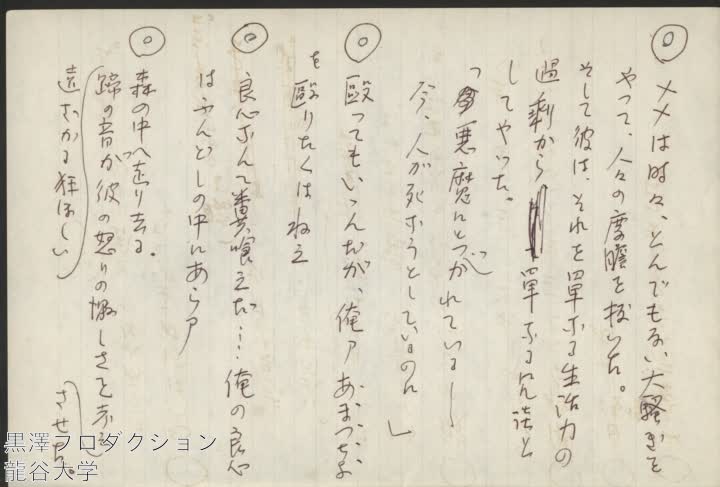 ◎ メメは時々、とんでもない大騒ぎを
やって、人々の度膽を抜いた。
そして彼は、それを単なる生活力の
過剰から単なる冗談と
してやった。
「悪魔にとつがれている！
今、人が死なうとしているのに」
◎ 殴ってもいゝんだが、俺アあまつちよ
を殴りたくはねえ
◎ 良心なんて糞喰えだ…俺の良心
はふんどしの中にあらア
◎ 森の中へ走り去る。
蹄の音が彼の怒りの激しさを
遠ざかる狂ほしい
させた。
黒澤プロダクション
龍谷大学